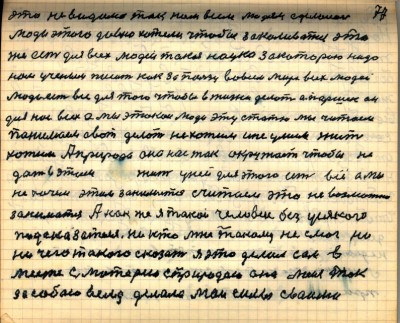 это невидимо так нам всем людям сделали 78
люди этого давно хотели чтобы заниматся это
же ест для всех людей такая наука за которою надо
нам ученым писат как за палец во всем мире всех людей
люди ест все для того чтобы в жизни делат а
для нас всех а мы этакою люди эту статью мы читаем
понимаем свое делат не хотим и не умеем жит
хотим А природа она нас так окружает чтобы не
дат в этом жит у ней для этого ест всё а мы
не хочем этим заниматся считаем это не возможно
заниматся А как же я такой человек без усякого
подсказателя. ни кто мне такому не смог ни
ни чего такого сказат я это делал сам в
месте с, матерею с природою она моя так
за собою вела делала мои силы своими